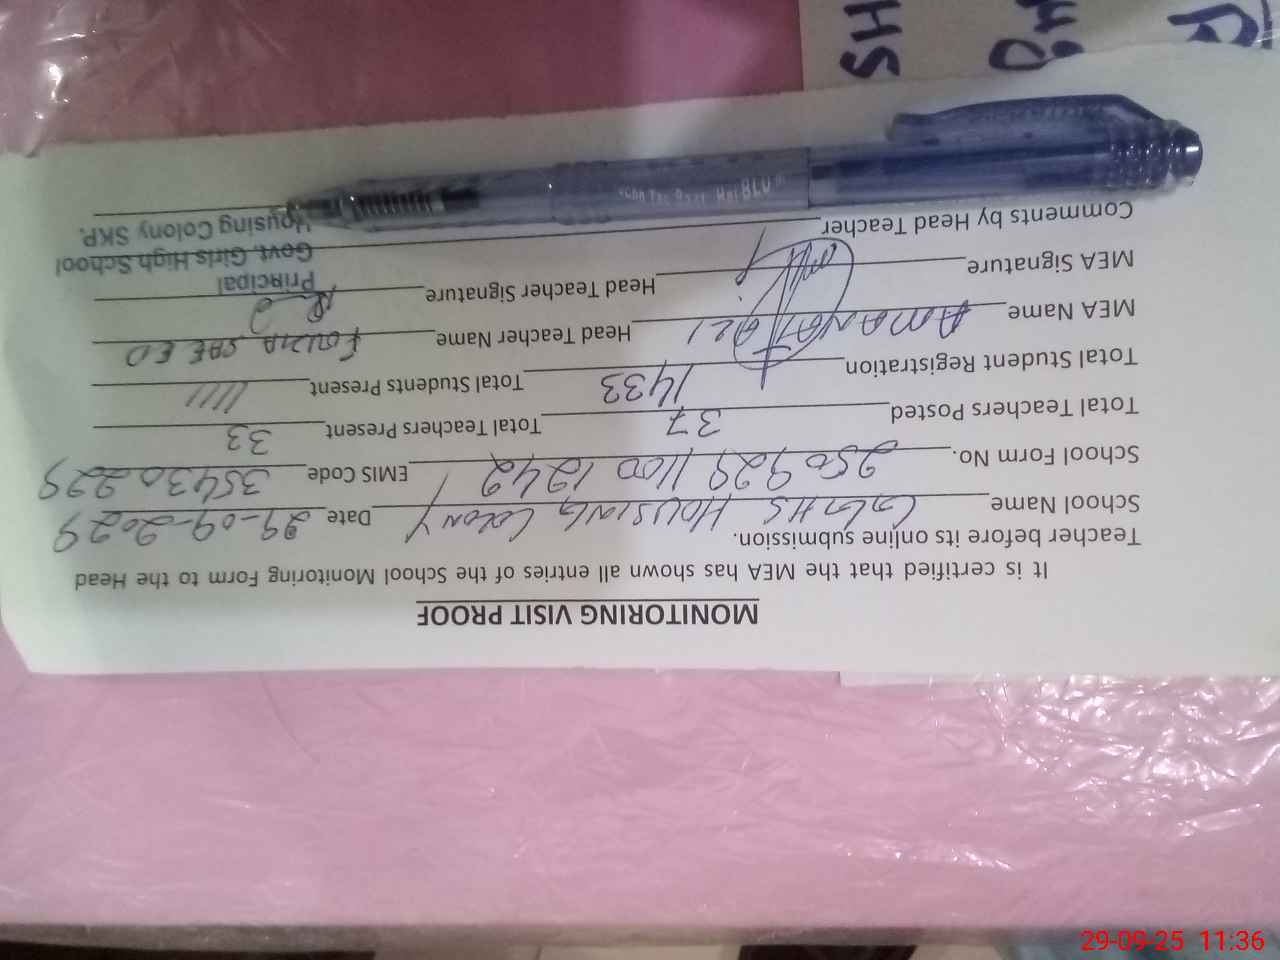 MONITORING VISIT PROOF
It is certified that the MEA has shown all entries of the School Monitoring Form to the Head
Teacher before its online submission.
School Name GGHS HOUSING COLONY Date 29-09-2029
School Form No. 250929 1100 1242 EMIS Code 35430229
Total Teachers Posted 37 Total Teachers Present 33
Total Student Registration 1433 Total Students Present 1111
MEA Name AMANAT ALI Head Teacher Name FOUZIA SAEED
MEA Signature Head Teacher Signature
Principal
Govt. Girls High School
Housing Colony SKP.
Comments by Head Teacher
SH
29-09-25 11:36